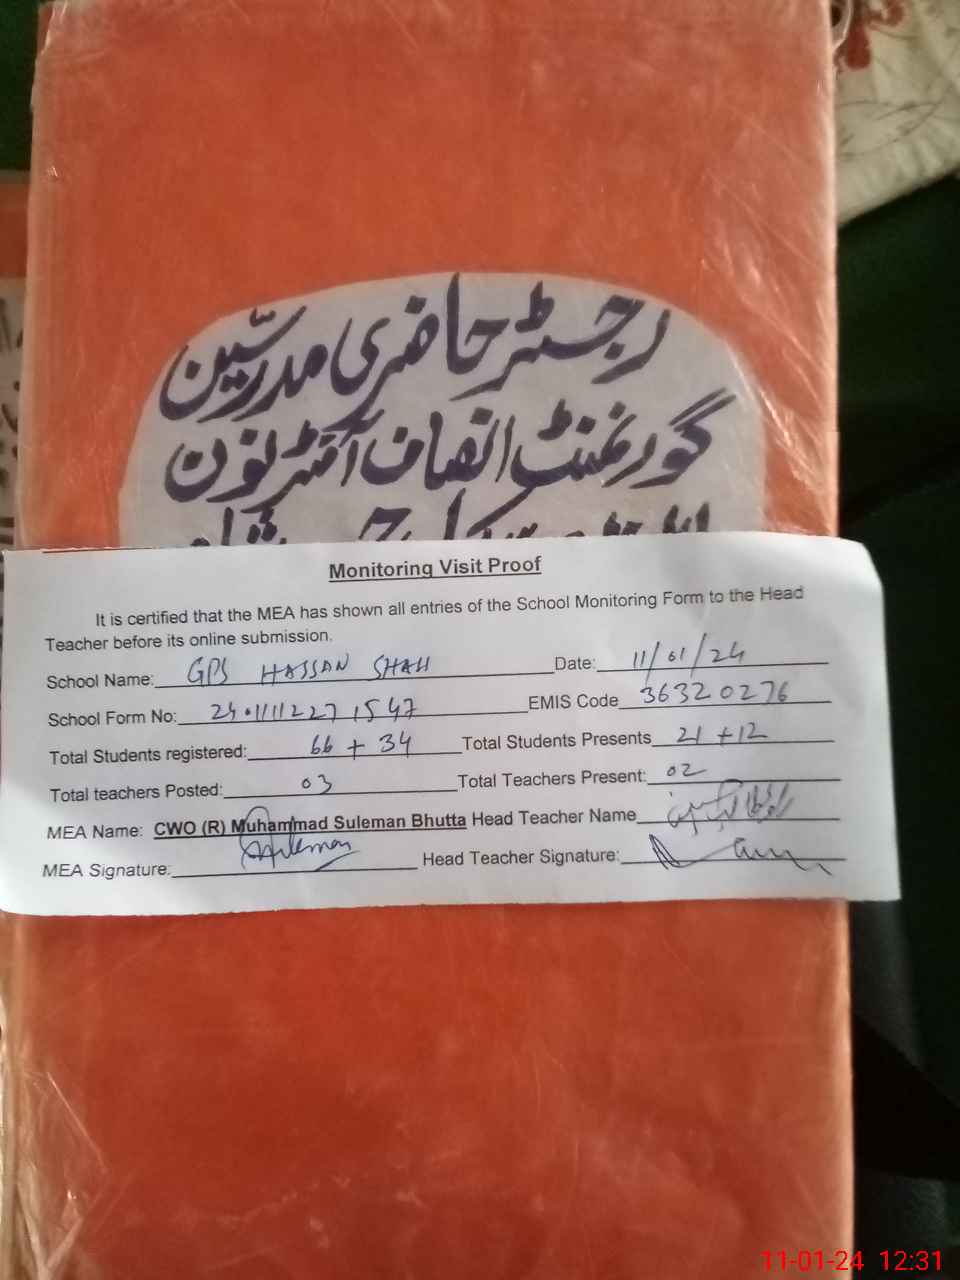 رجسٹر حاضری مدرسین
گورنمنٹ انصاف آفٹرنون
Monitoring Visit Proof
It is certified that the MEA has shown all entries of the School Monitoring Form to the Head
Teacher before its online submission.
School Name: GPS HASSAN SHAH Date: 11/01/24
School Form No: EMIS Code 36320276
Total Students registered: 66 + 34 Total Students Presents 21 +12
Total teachers Posted: 03 Total Teachers Present: 02
MEA Name: CWO (R) Muhammad Suleman Bhutta Head Teacher Name
MEA Signature: Suleman Head Teacher Signature:
11-01-24 12:31